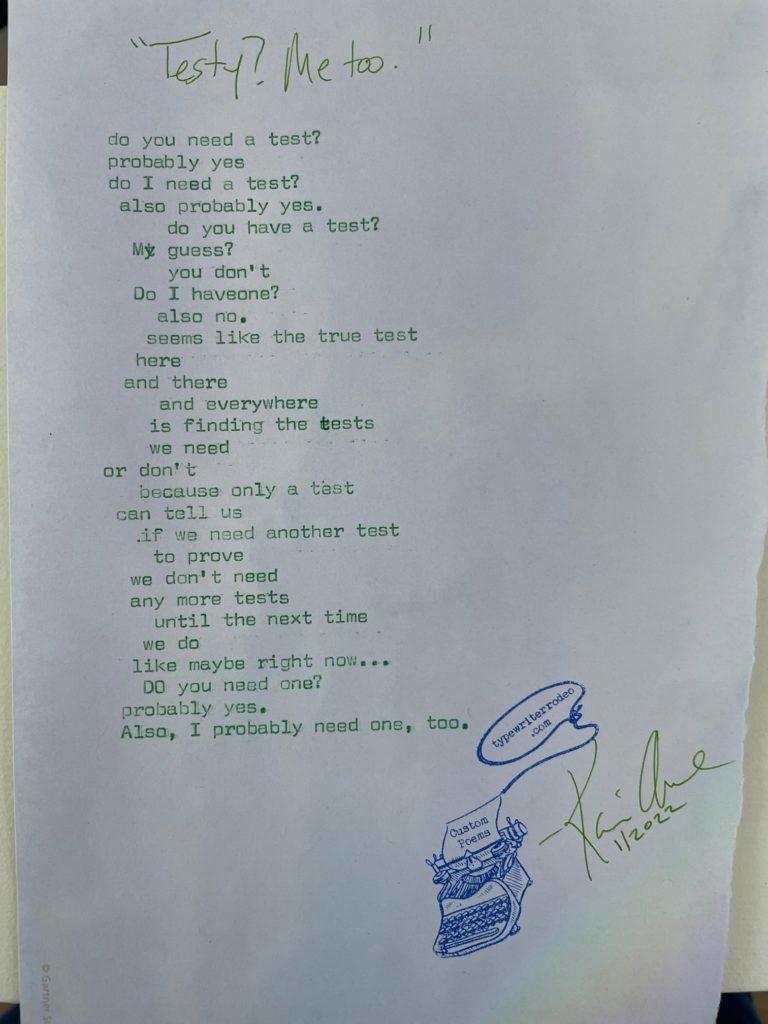 "Testy? Me too."
do you need a test?
probably yes
do I need a test?
also probably yes.
do you have a test?
My guess?
you don't
Do I haveone?
also no.
seems like the true test
here
and there
and everywhere
is finding the tests
we need
or don't
because only a test
can tell us
.if we need another test
to prove
we don't need
any more tests
until the next time
we do
like maybe right now...
DO you need one?
probably yes.
Also, I probably need one, too.
typewriterrodeo
.com
Custom
Poems
1/2022
© Gartner